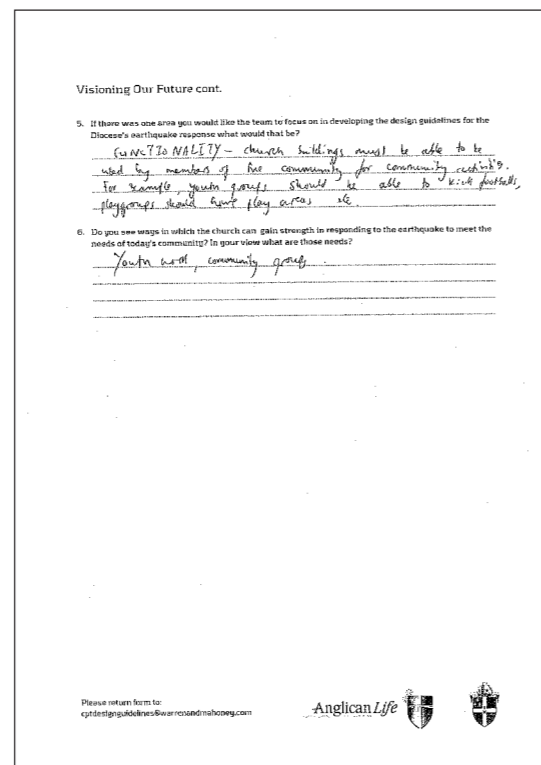 Visioning Our Future cont.
5. If there was one area you would like the team to focus on in developing the design guidelines for the
Diocese's earthquake response what would that be?
FUNCTIONALITY - church buildings must be able to be
used by members of the community for community
For example, youth groups should be able to kick footballs,
playgroups should have play areas etc
6. Do you see ways in which the church can gain strength in responding to the earthquake to meet the
needs of today's community? In your view what are those needs?
Youth work, community groups.
Please return form to:
cptdesignguidelines@warrenandmahoney.com
Anglican Life